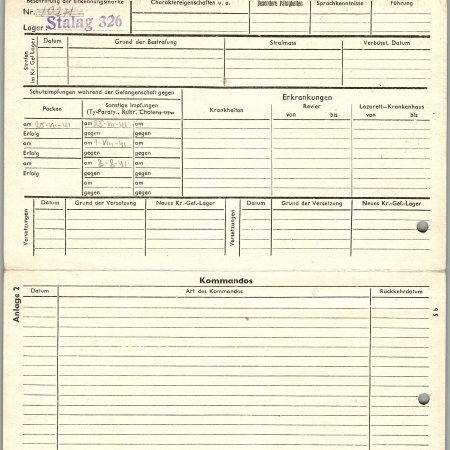 Beschriftung der Erkennungsmarke
Charaktereigenschaften u. a.
Besondere Fähigkeiten
Sprachkenntnisse
Führung
Nr.
Lager: Stalag 326
Strafen im Kr. Gef. Lager
Datum
Grund der Bestrafung
Strafmass
Verbüsst, Datum
Schutzimpfungen während der Gefangenschaft gegen
Erkrankungen
Pocken
Sonstige Impfungen
(Ty-Paraty., Ruhr, Cholera usw
Krankheiten
Revier
von bis
Lazarett—Krankenhaus
von bis
am 25-VII-41 am 25-VII-41 am
Erfolg gegen gegen
am am 1-VIII-41 am
Erfolg gegen gegen
am am 8-8-41 am
Erfolg gegen gegen
am am
gegen gegen
Versetzungen
Datum
Grund der Versetzung
Neues Kr.-Gef.-Lager
Versetzungen
Datum
Grund der Versetzung
Neues Kr.-Gef.-Lager
Kommandos
Anlage 2
Datum
Art des Kommandos
Rückkehrdatum
5 b